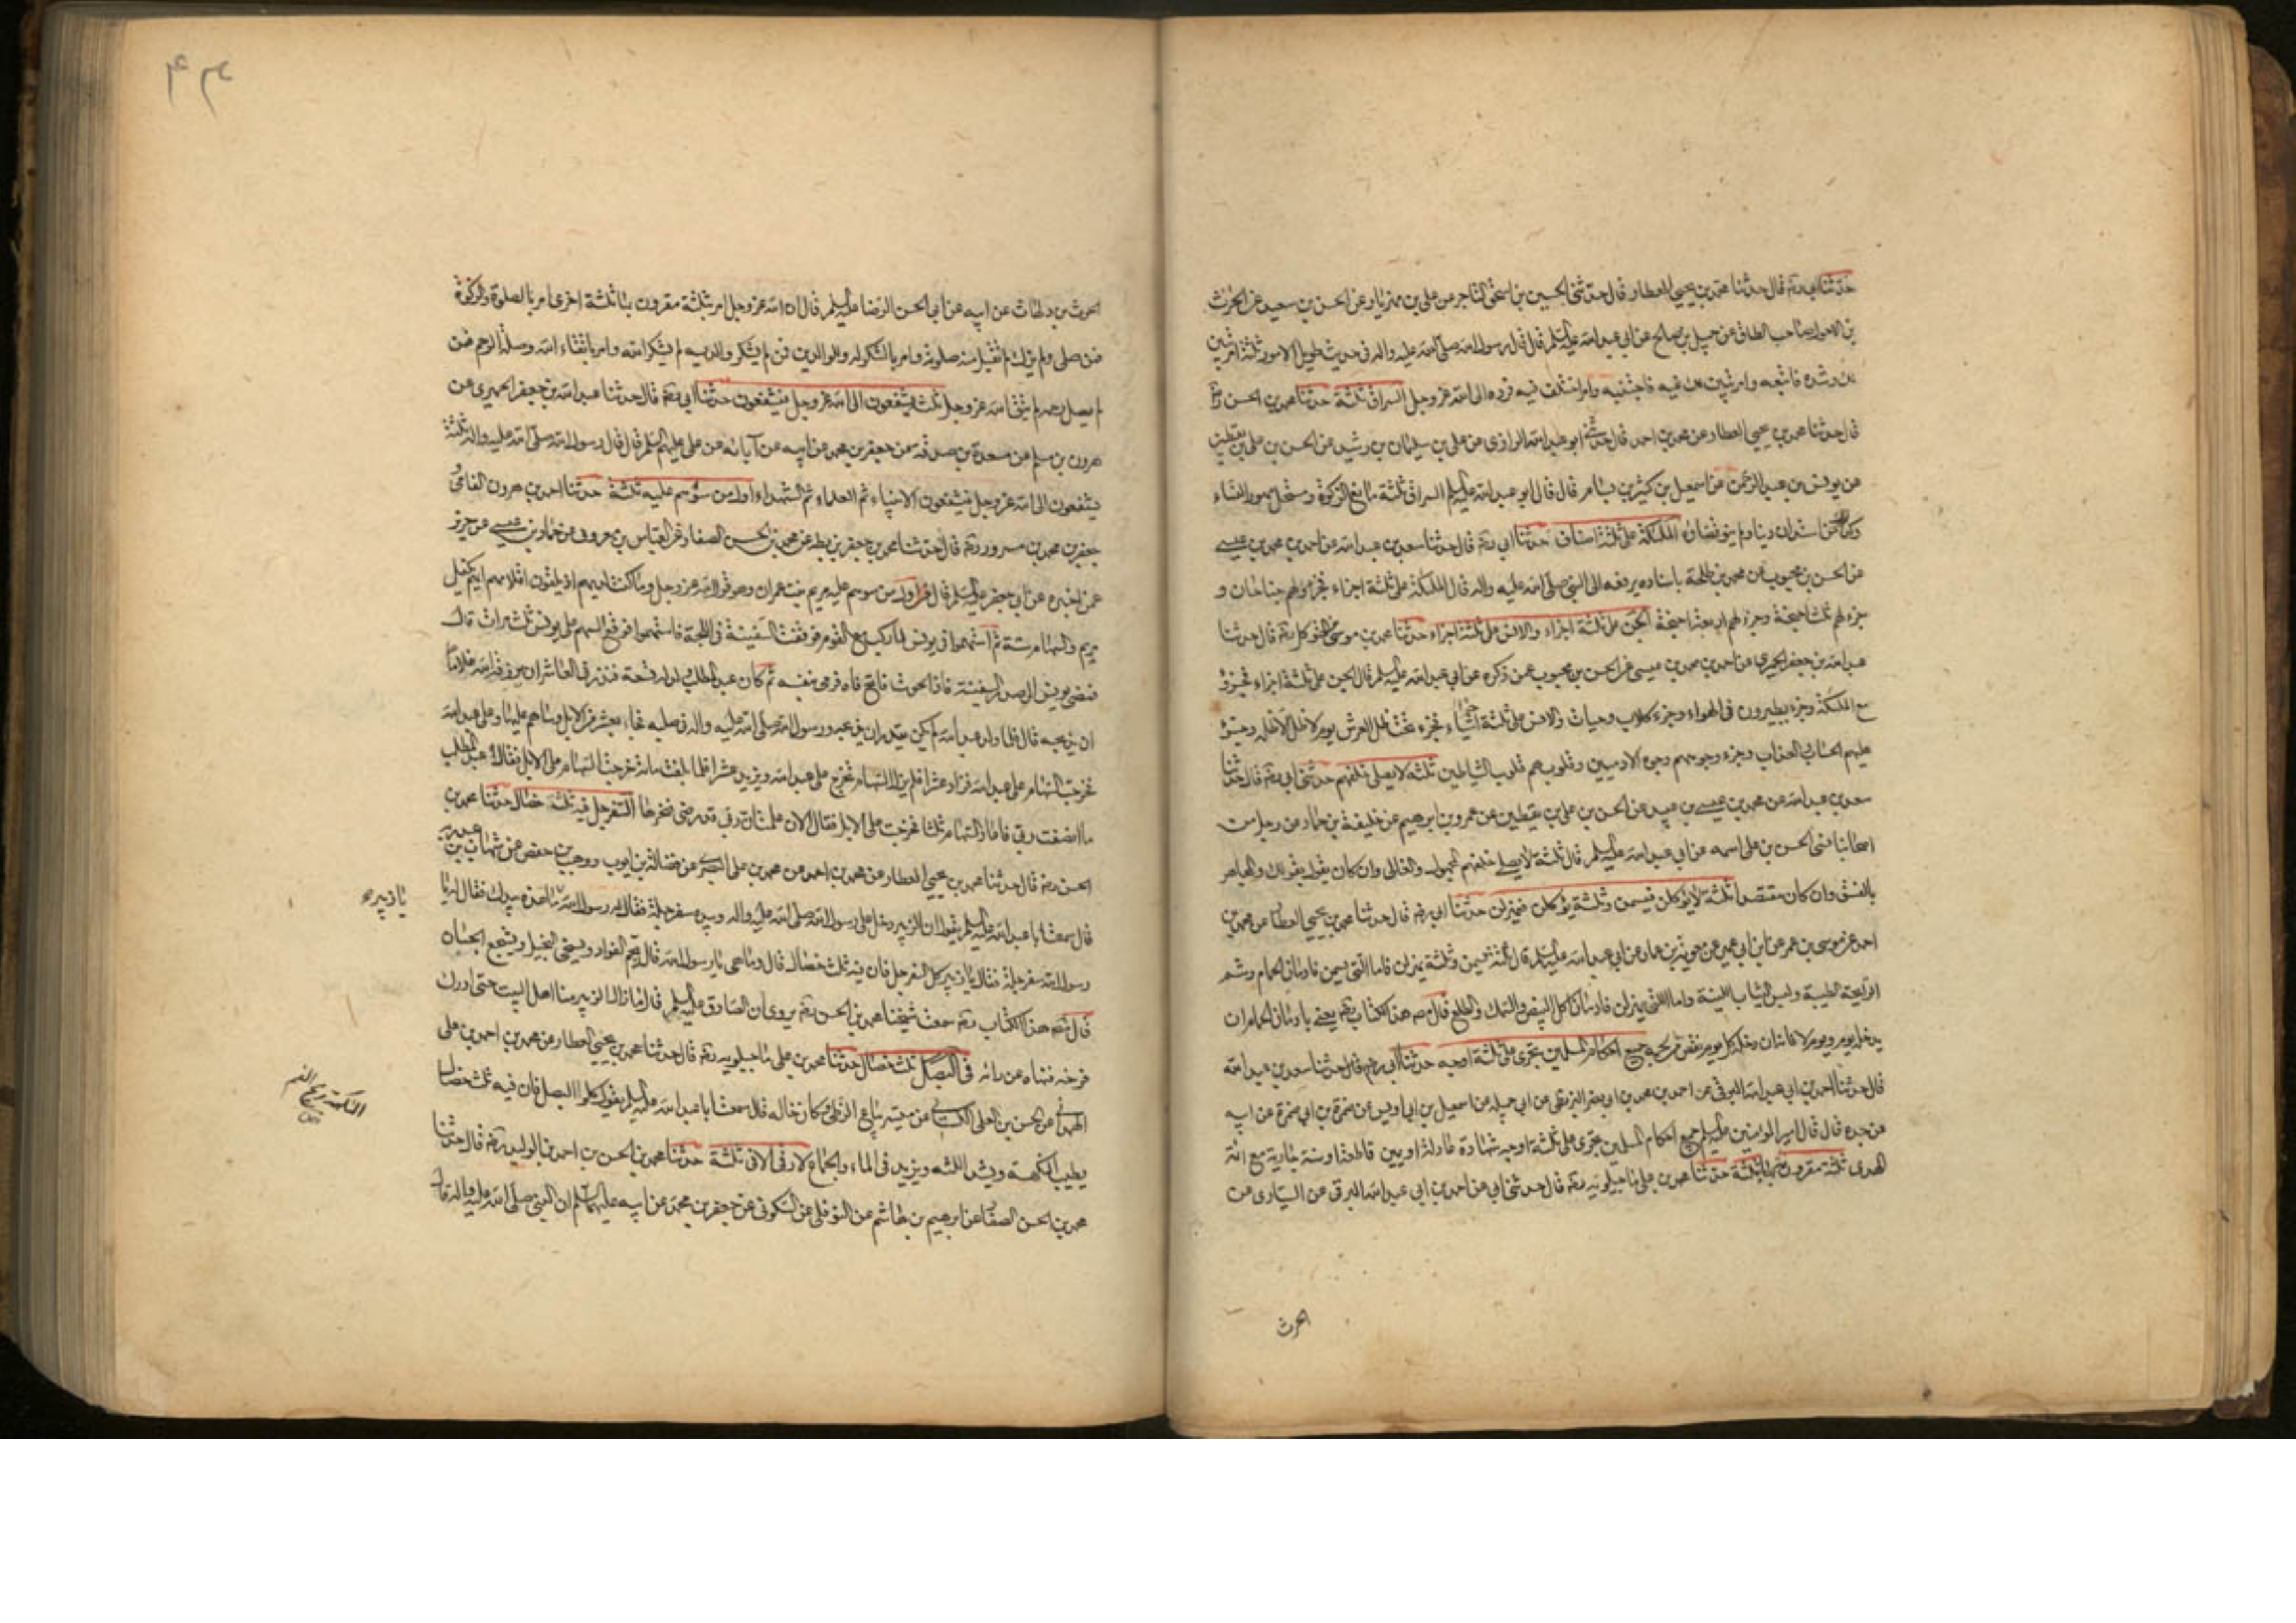 حدثنا ابي رض قال حدثنا محمد بن يحيى العطار قال حدثنى الحسين بن اسحق التاجر عن على بن مهزيار عن الحسن بن سعيد عن الحرث
بن الاحول صاحب الطاق عن جميل بن صالح عن ابي عبد الله عليه السلم قال قال رسول الله صلى الله عليه واله فى حديث طويل الامور ثلثة امر تبين
لك رشده فاتبعه وامر تبين لك غيه فاجتنبه وامر اختلف فيه فرده الى الله عز وجل السراق ثلثة حدثنا محمد بن الحسن رض
قال حدثنا محمد بن يحيى العطار عن محمد بن احمد قال حدثنى ابو عبد الله الرازى عن على بن سليمان بن رشيد عن الحسن بن على بن يقطين
عن يونس بن عبد الرحمن عن اسمعيل بن كثير بن بسام قال قال ابو عبد الله عليه السلم السراق ثلثة مانع الزكوة ومستحل مهور النساء
وكذلك من استدان دينا ولم ينو قضائه الملئكة على ثلثة اصناف حدثنا ابي رض قال حدثنا سعد بن عبد الله عن احمد بن محمد بن عيسى
عن الحسن بن محبوب عن محمد بن طلحة باسناده يرفعه الى النبي صلى الله عليه واله قال الملئكة على ثلثة اجزاء فجزء لهم جناحان و
جزء لهم ثلث اجنحة وجزء لهم اربعة اجنحة الجن على ثلثة اجزاء والانس على ثلثة اجزاء حدثنا محمد بن موسى بن المتوكل رض قال حدثنا
عبد الله بن جعفر الحميرى عن احمد بن محمد بن عيسى عن الحسن بن محبوب عمن ذكره عن ابي عبد الله عليه السلم قال الجن على ثلثة اجزاء فجزء
مع الملئكة وجزء يطيرون فى الهواء وجزء كلاب وحيات والانس على ثلثة اجزاء فجزء تحت ظل العرش يوم لا ظل الا ظله وجزء
عليهم الحساب والعذاب وجزء وجوههم وجوه الادميين وقلوبهم قلوب الشياطين ثلثة لا يصلى خلفهم حدثنى ابي رض قال حدثنا
سعد بن عبد الله عن محمد بن عيسى بن عبيد عن الحسن بن على بن يقطين عن عمرو بن ابرهيم عن خليفة بن حماد عن رجل من
اصحابنا نسى الحسن بن على اسمه عن ابي عبد الله عليه السلم قال ثلثة لا يصلى خلفهم المجهول والغالى وان كان يقول بقولك والمجاهر
بالفسق وان كان مقتصدا ثلثة لا يؤكلن فيسمن وثلثة يؤكلن فيهزلن حدثنا ابي رض قال حدثنا محمد بن يحيى العطار عن محمد بن
احمد عن موسى بن عمر عن ابن ابي عمير عن معوية بن عمار عن ابي عبد الله عليه السلم قال ثلثة يسمن وثلثة يهزلن فاما التى يسمن فادمان الحمام وشم
الرايحة الطيبة ولبس الثياب اللينة واما اللتى يهزلن فادمان اكل البيض والسمك والطلع قال مص هذا الكتاب رض يعنى بادمان الحمام ان
يدخل يوم ويوم لا فانه ان دخل كل يوم نقص من لحمه جميع احكام المسلمين تجرى على ثلثة اوجه حدثنا ابي رض قال حدثنا سعد بن عبد الله
قال حدثنا احمد بن ابي عبد الله البرقى عن احمد بن محمد بن ابي نصر البزنطى عن ابي جميله عن اسمعيل بن ابي اويس عن ضمرة بن ابي ضمرة عن ابيه
عن جده قال قال امير المؤمنين عليه السلم جميع احكام المسلمين تجرى على ثلثة اوجه شهادة عادلة او يمين قاطعة او سنة جارية مع ائمة
الهدى ثلثة مقرون بها ثلثة حدثنا محمد بن على ماجيلويه رض قال حدثنى ابي عن احمد بن ابي عبد الله البرقى عن السيارى عن
الحرث
الحرث بن دلهاث عن ابيه عن ابي الحسن الرضا عليه السلم قال ان الله عز وجل امر بثلثة مقرون بها ثلثة اخرى امر بالصلوة والزكوة
فمن صلى ولم يزك لم تقبل منه صلوته وامر بالشكر له وللوالدين فمن لم يشكر والديه لم يشكر الله وامر باتقاء الله وصلة الرحم فمن
لم يصل رحمه لم يتق الله عز وجل ثلث يشفعون الى الله عز وجل فيشفعون حدثنا ابي رض قال حدثنا عبد الله بن جعفر الحميرى عن
هرون بن مسلم عن مسعدة بن صدقه عن جعفر بن محمد عن ابيه عن آبائه عن على عليهم السلم قال قال رسول الله صلى الله عليه واله ثلثة
يشفعون الى الله عز وجل فيشفعون الانبياء ثم العلماء ثم الشهداء اول من سوهم عليه ثلثة حدثنا احمد بن هرون الفامى و
جعفر بن محمد بن مسرور رض قال حدثنا محمد بن جعفر بن بطه عن محمد بن الحسن الصفار عن العباس بن معروف عن حماد بن عيسى عن حريز
عمن اخبره عن ابي جعفر عليه السلم قال اول من سوهم عليه مريم بنت عمران وهو قول الله عز وجل وما كنت لديهم اذ يلقون اقلامهم ايهم يكفل
مريم والسهام ستة ثم استهموا فى يونس لما ركب مع القوم فوقفت السفينة فى اللجة فاستهموا فوقع السهم على يونس ثلث مرات قال
فمضى يونس الى صدر السفينة فاذا الحوت فاتح فاه فرمى بنفسه ثم كان عبد المطلب ولد له تسعة فنذر فى العاشر ان يرزقه الله غلاما
ان يذبحه قال فلما ولد عبد الله لم يكن يقدر ان يذبحه ورسول الله صلى الله عليه واله فى صلبه فجاء بعشر من الابل وساهم عليها وعلى عبد الله
فخرجت السهام على عبد الله فزاد عشرا فلم يزل السهام تخرج على عبد الله ويزيد عشرا فلما بلغت مائة خرجت السهام على الابل فقال عبد المطلب
ما انصفت ربى فاعاد السهام ثلثا فخرجت على الابل فقال الان علمت ان ربى قد رضى فنحرها السفرجل فيه ثلثة خصال حدثنا محمد بن
الحسن رض قال حدثنا محمد بن يحيى العطار عن محمد بن احمد عن محمد بن على عن فضالة بن ايوب ووهيب بن حفص عن شهاب بن عبد ربه
قال سمعت ابا عبد الله عليه السلم يقول ان الزبير دخل على رسول الله صلى الله عليه واله وبيده سفرجلة فقال له رسول الله ما هذه بيدك فقال له يا
يا زبير
رسول الله سفرجلة فقال يا زبير كل السفرجل فان فيه ثلث خصال قال وما هى يا رسول الله قال يجم الفواد ويسخى البخيل ويشجع الجبان
قال مص هذا الكتاب رض سمعت شيخنا محمد بن الحسن رض يروى ان الصادق عليه السلم قال ما زال الزبير منا اهل البيت حتى ادرك
فرخه فنهاه عن رائه فى البصل ثلث خصال حدثنا محمد بن على ماجيلويه رض قال حدثنا محمد بن يحيى العطار عن محمد بن احمد بن على
الهمدانى عن الحسن بن على الكسائى عن ميسر بياع الزطى وكان خاله قال سمعت ابا عبد الله عليه السلم يقول كلوا البصل فان فيه ثلث خصال
النكهت ريح الفم
يطيب النكهة ويشد اللثه ويزيد فى الماء والجماع لا رقى الا فى ثلثة حدثنا محمد بن الحسن بن احمد بن الوليد رض قال حدثنا
محمد بن الحسن الصفار عن ابرهيم بن هاشم عن النوفلى عن السكونى عن جعفر بن محمد عن ابيه عليهما السلم ان النبي صلى الله عليه واله قال